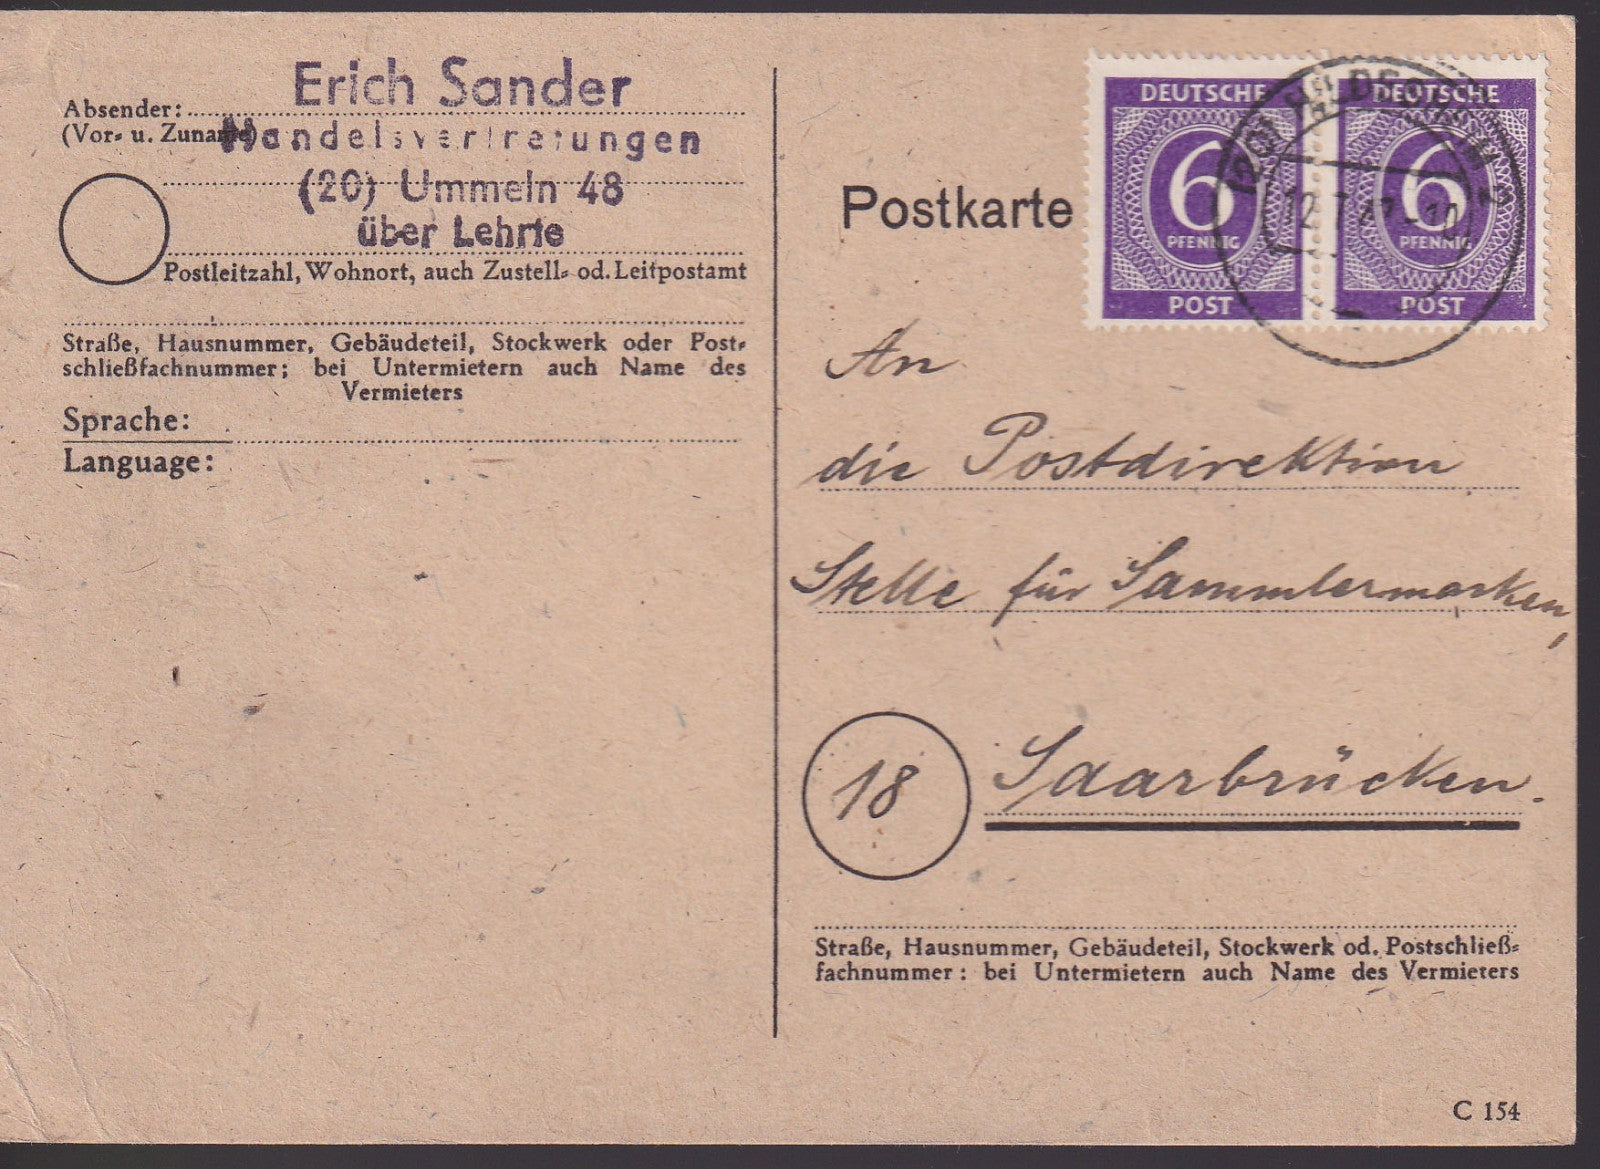 Erich Sander
Absender:
(Vor- u. Zuname)
Handelsvertretungen
(20) Ummeln 48
über Lehrte
Postleitzahl, Wohnort, auch Zustell- od. Leitpostamt
Straße, Hausnummer, Gebäudeteil, Stockwerk oder Post-
schließfachnummer; bei Untermietern auch Name des
Vermieters
Sprache:
Language:
Postkarte
DEUTSCHE
6
PFENNIG
POST
DEUTSCHE
6
PFENNIG
POST
(20) HILDESHEIM 2
An
die Postdirektion
Stelle für Sammlermarken,
18
Saarbrücken.
Straße, Hausnummer, Gebäudeteil, Stockwerk od. Postschließ-
fachnummer: bei Untermietern auch Name des Vermieters
C 154